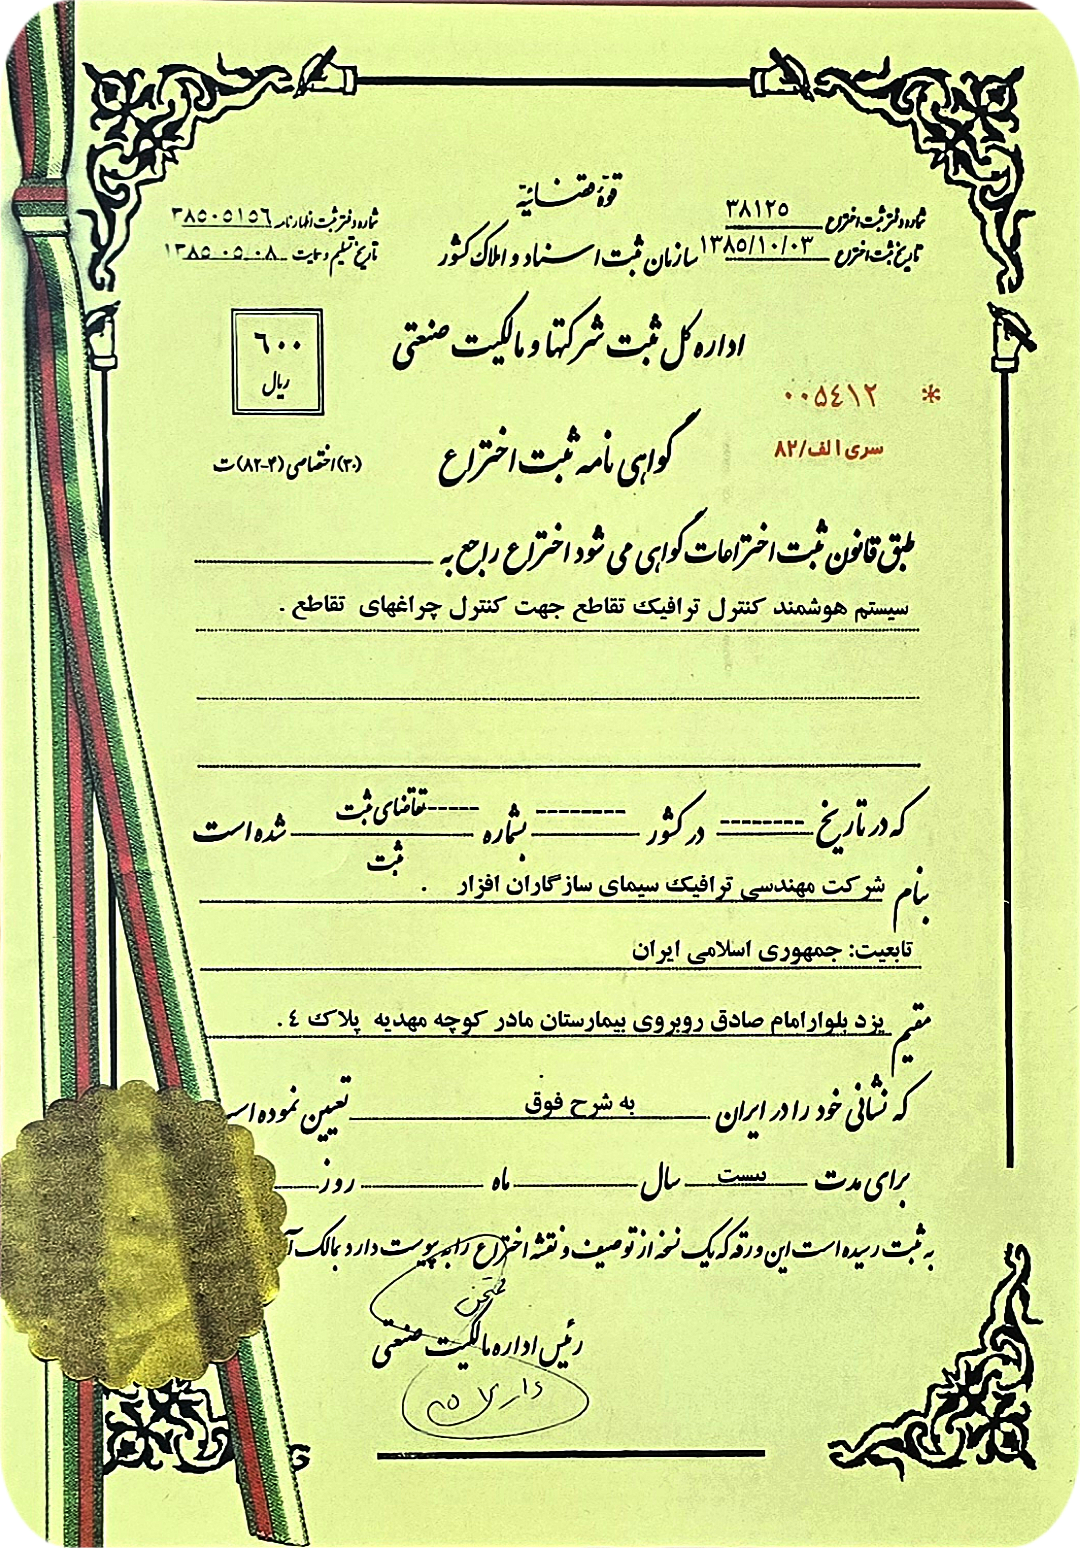 قوهٔ قضائیه
شماره دفتر ثبت اختراع ۳۸۱۲۵
شماره دفتر ثبت اظهارنامه ۳۸۵۰۵۱۵۶
سازمان ثبت اسناد و املاک کشور
تاریخ ثبت اختراع ۱۳۸۵/۱۰/۰۳
تاریخ تسلیم و حمایت ۱۳۸۵-۰۵-۰۸
اداره کل ثبت شرکتها و مالکیت صنعتی
۶۰۰
ریال
* ۰۰۵۴۱۲
سری الف/۸۲
گواهی نامه ثبت اختراع
(۳۰) اختصاصی (۴-۸۲) ت
طبق قانون ثبت اختراعات گواهی می شود اختراع راجع به
سیستم هوشمند کنترل ترافیک تقاطع جهت کنترل چراغهای تقاطع .
که در تاریخ -------- در کشور -------- بشماره ----- تقاضای ثبت شده است
ثبت
بنام شرکت مهندسی ترافیک سیمای سازگاران افزار .
تابعیت: جمهوری اسلامی ایران
مقیم یزد بلوارامام صادق روبروی بیمارستان مادر کوچه مهدیه پلاک ۴ .
که نشانی خود را در ایران به شرح فوق تعیین نموده
برای مدت بیست سال ماه روز
به ثبت رسیده است این ورقه که یک نسخه از توصیف و نقشه اختراع را به پیوست دارد بمالک
رئیس اداره مالکیت صنعتی